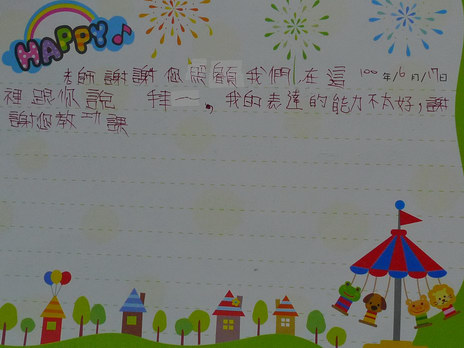 HAPPY
老師謝謝您照顧我們,在這 100年10月17日
裡跟你說 拜一。我的表達的能力不太好,謝
謝您教功課